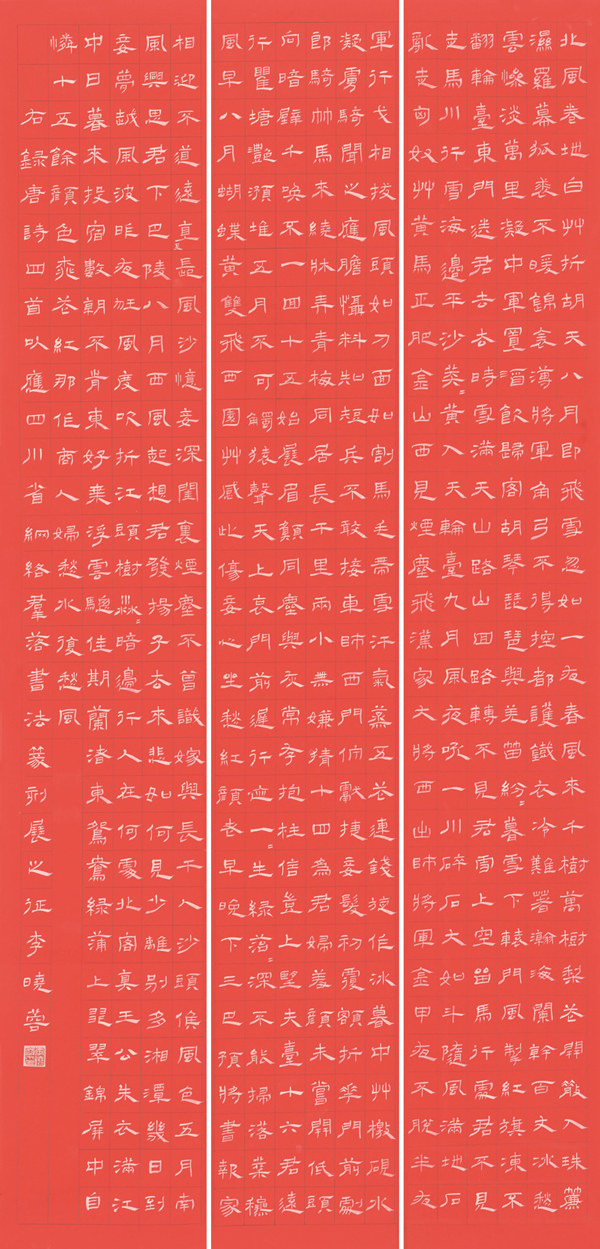 北風卷地白艸折胡天八月即飛雪忽如一夜春風來千樹萬樹梨花開散入珠簾
濕羅幕狐裘不暖錦衾薄將軍角弓不得控都護鐵衣冷難著瀚海闌幹百丈冰愁
雲慘淡萬里凝中軍置酒飲歸客胡琴琵琶與羌笛紛=暮雪下轅門風掣紅旗凍不
翻輪臺東門送君去去時雪滿天山路山回路轉不見君雪上空留馬行處君不見
走馬川行雪海邊平沙莽=黃入天輪臺九月風夜吼一川碎石大如斗隨風滿地石
亂走匈奴艸黃馬正肥金山西見煙塵飛漢家大將西出師將軍金甲夜不脫半夜
軍行戈相拔風頭如刀面如割馬毛帶雪汗氣蒸五花連錢旋作冰暮中艸檄硯水
凝虜騎聞之應膽懾料知短兵不敢接車師西門佇獻捷妾髮初覆額折華門前劇
郎騎竹馬來繞牀弄青梅同居長干里兩小無嫌猜十四為君婦羞顏未嘗開低頭
向暗壁千喚不一回十五始展眉願同塵與灰常存抱柱信豈上望夫臺十六君遠
行瞿塘灩澦堆五月不可觸猿聲天上哀門前遲行跡一=生綠苔=深不能掃落葉穐
風早八月蝴蝶黃雙飛西園艸感此傷妾心坐愁紅顏老早晚下三巴預將書報家
相迎不道遠直=長風沙憶妾深閨裏煙塵不曾識嫁與長干人沙頭候風色五月南
風興思君下巴陵八月西風起想君發揚子去來悲如何見少離別多湘潭幾日到
妾夢越風波昨夜狂風度吹折江頭樹淼=暗邊行人在何處北客真王公朱衣滿江
中日暮來投宿數朝不肯東好乘浮雲驄佳期蘭渚東鴛鴦綠蒲上翡翠錦屏中自
憐十五餘顏色桃花紅那作商人婦愁水復愁風
右錄唐詩四首以應四川省網絡羣落書法篆刻展之征李曉蓉